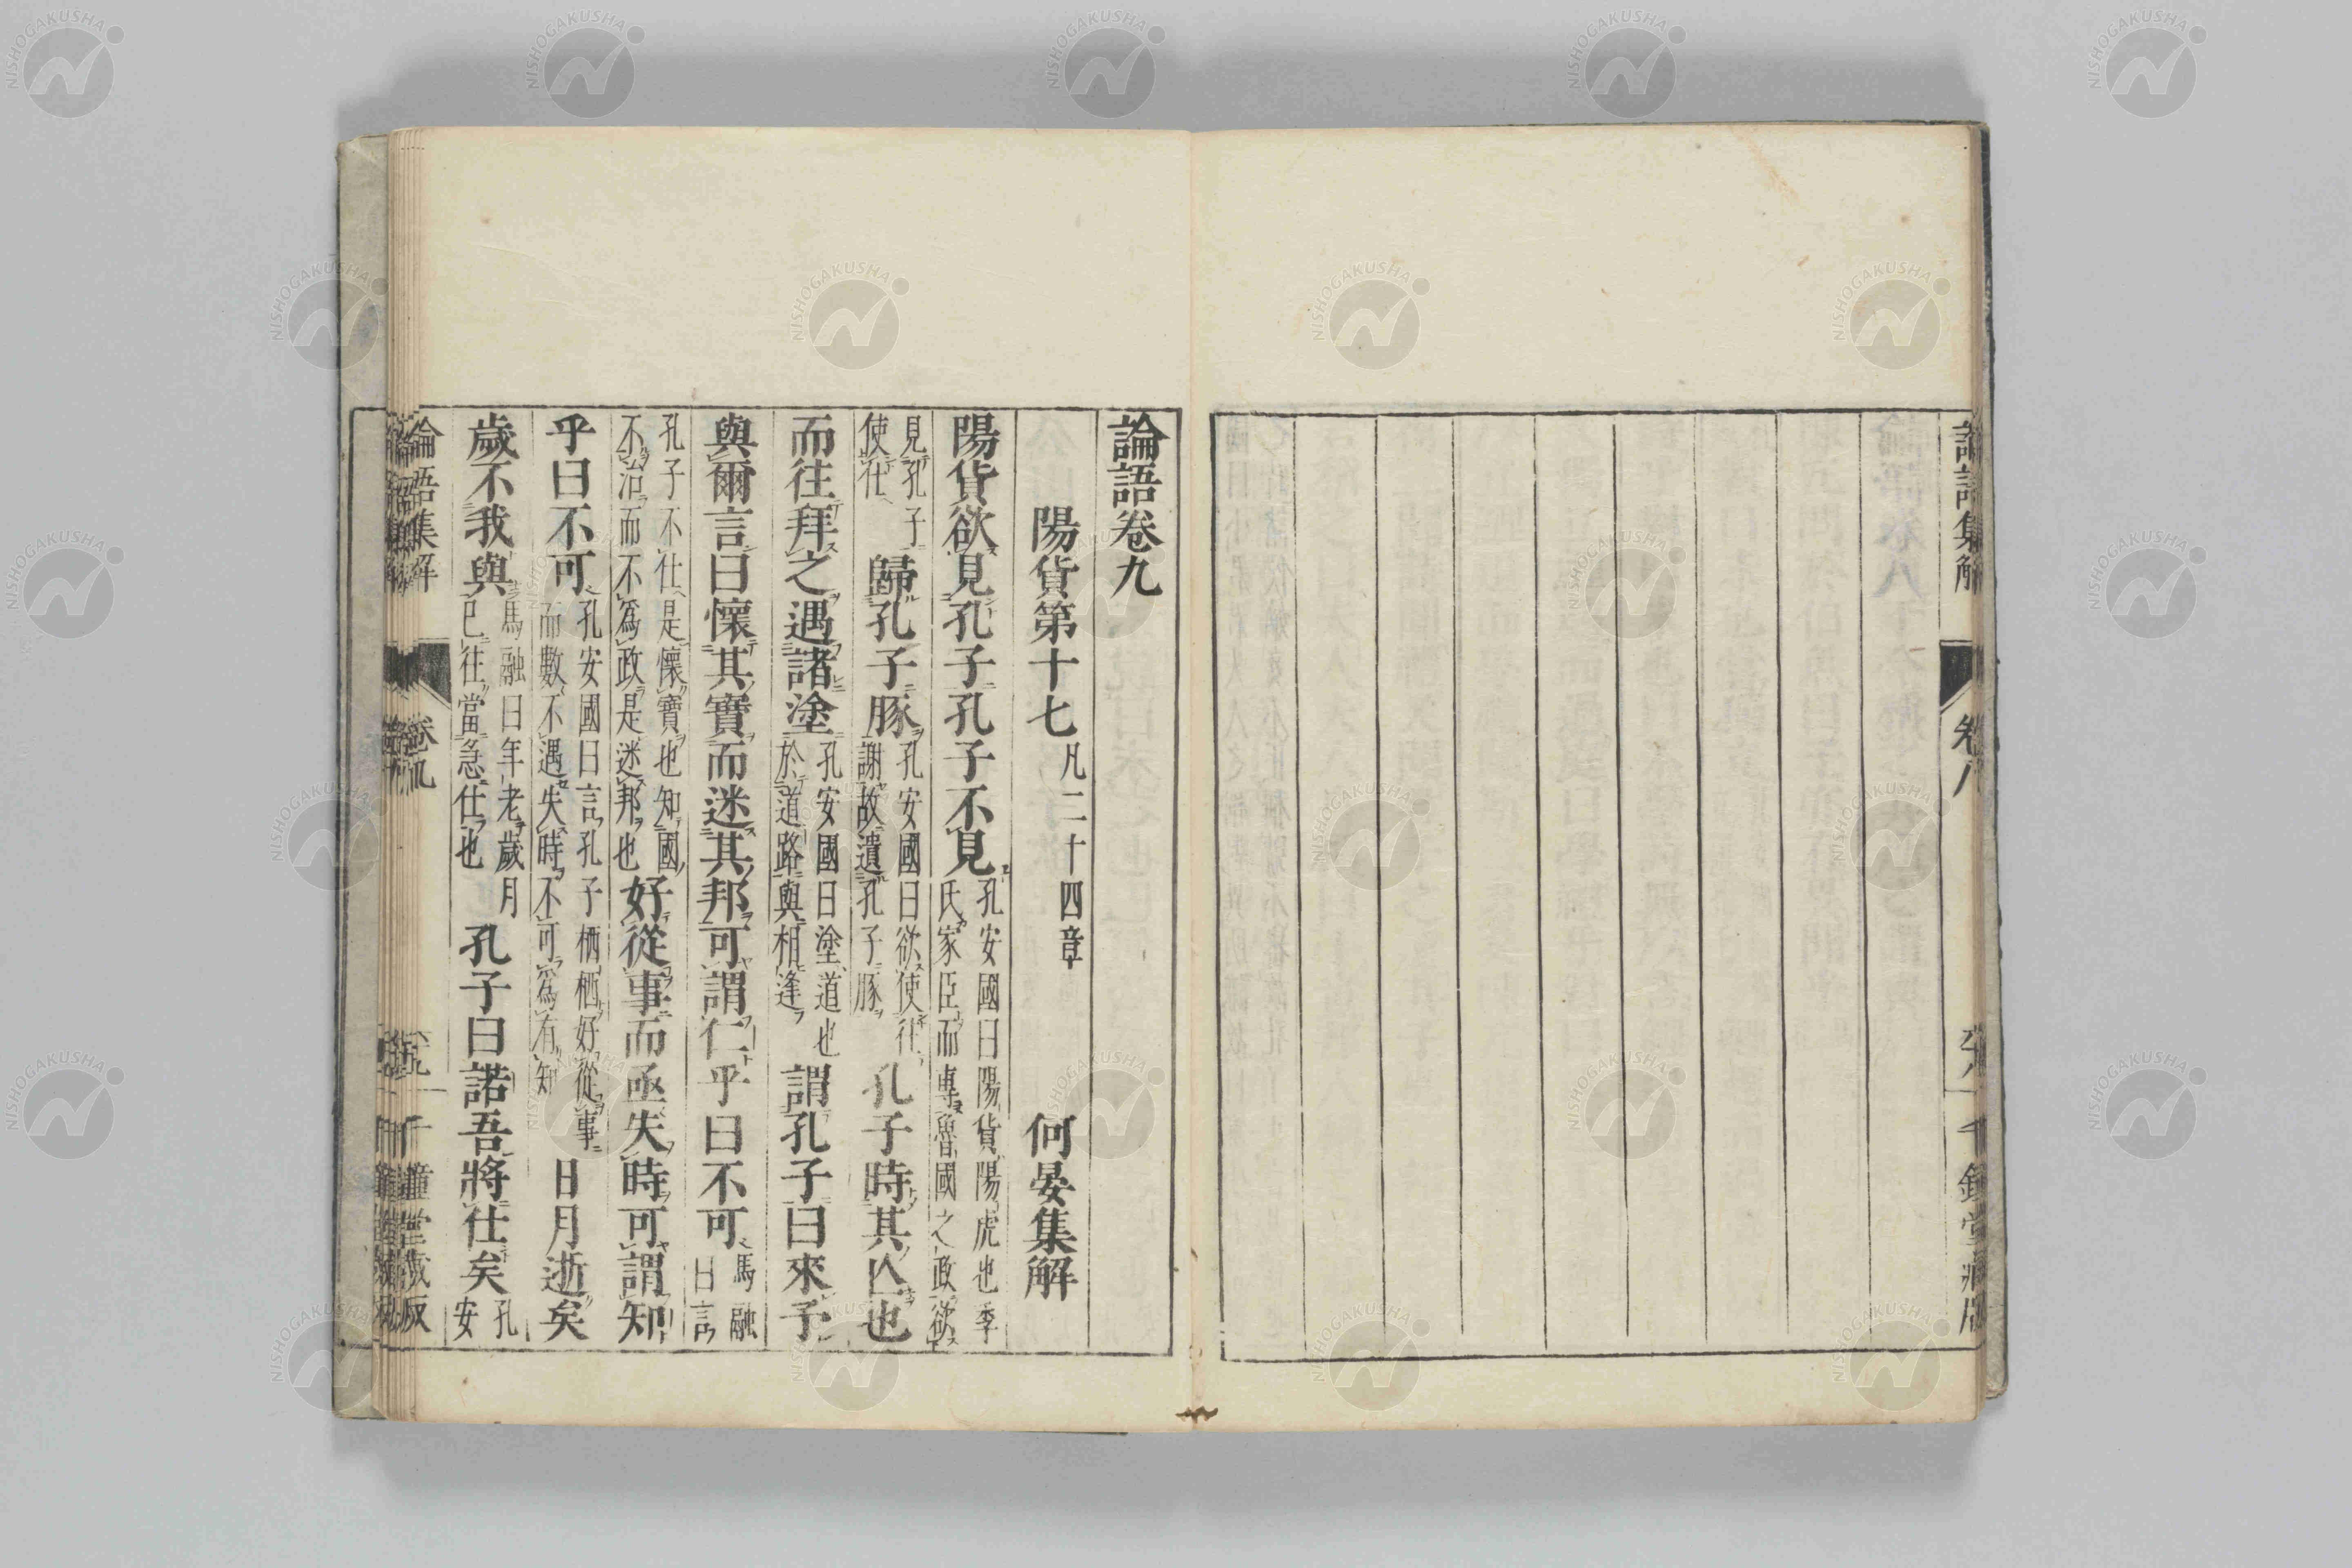 論語集解
卷八
千鍾堂藏版
論語卷九
陽貨第十七 凡二十四章 何晏集解
陽貨欲見孔子孔子不見 孔安國曰陽貨陽虎也季
氏家臣而專魯國之政欲
見孔子
使仕 歸孔子豚 孔安國曰欲使往
謝故遺孔子豚 孔子時其亾也
而往拜之遇諸塗 孔安國曰塗道也
於道路與相逢 謂孔子曰來予
與爾言曰懷其寶而迷其邦可謂仁乎曰不可 馬融
曰言
孔子不仕是懷寶也知國
不治而不爲政是迷邦也 好從事而亟失時可謂知
乎曰不可 孔安國曰言孔子栖栖好從事
而數不遇失時不可爲有知 日月逝矣
歲不我與 馬融曰年老歲月
已往當急仕也 孔子曰諾吾將仕矣 孔
安
論語集解
卷九
千鍾堂藏版
NISHOGAKUSHA